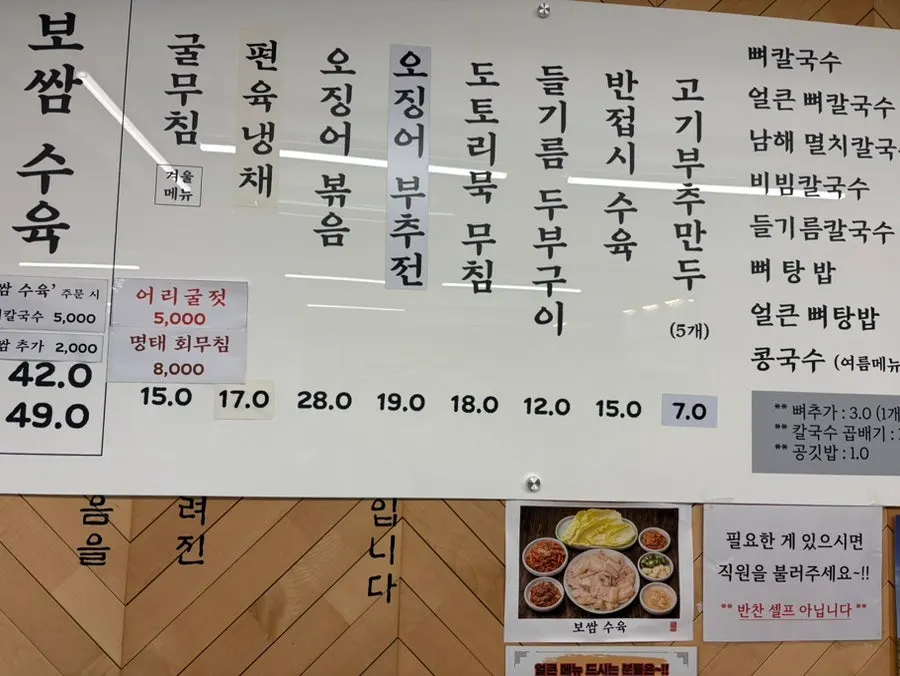 보쌈 수육
쌈 수육' 주문 시
칼국수 5,000
쌈 추가 2,000
42.0
49.0
굴무침
겨울
메뉴
어리굴젓
5,000
명태 회무침
8,000
15.0
편육냉채
17.0
오징어 볶음
28.0
오징어 부추전
19.0
도토리묵 무침
18.0
들기름 두부구이
12.0
반접시 수육
15.0
고기부추만두
(5개)
7.0
뼈칼국수
얼큰 뼈칼국수
남해 멸치칼국
비빔칼국수
들기름칼국수
뼈 탕 밥
얼큰 뼈탕밥
콩국수 (여름메뉴
** 뼈추가 : 3.0 (1개
** 칼국수 곱배기 :
** 공깃밥 : 1.0
음을
려진
입니다
보쌈 수육
필요한 게 있으시면
직원을 불러주세요~!!
** 반찬 셀프 아닙니다 **
얼큰 메뉴 드시는 분들은~!!